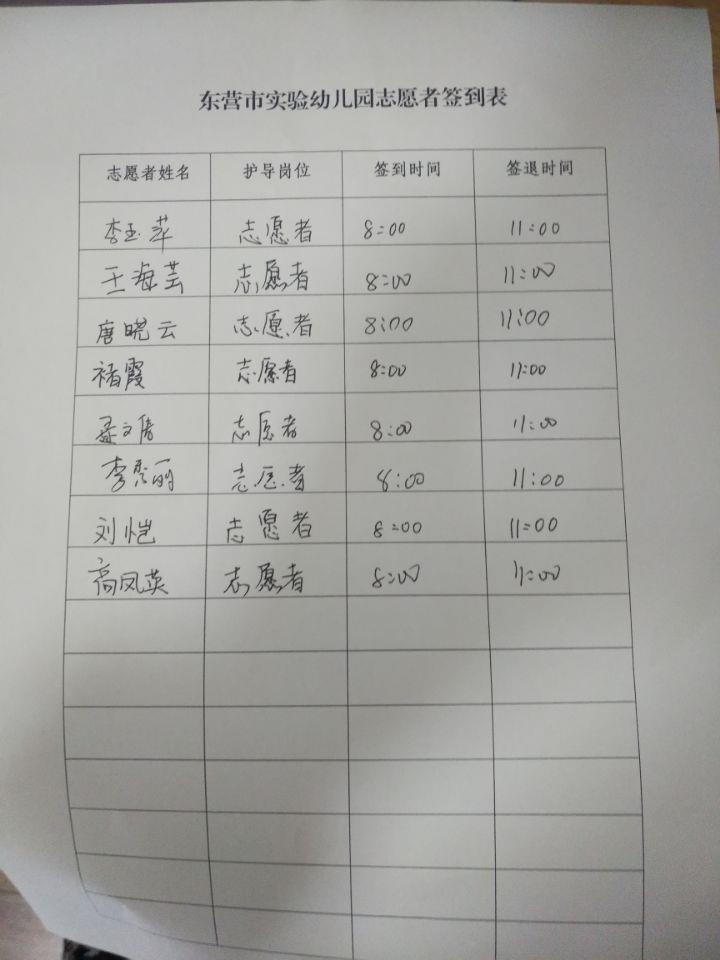 东营市实验幼儿园志愿者签到表
志愿者姓名 护导岗位 签到时间 签退时间
李玉苹 志愿者 8:00 11:00
王海芸 志愿者 8:00 11:00
唐晓云 志愿者 8:00 11:00
褚霞 志愿者 8:00 11:00
孟文倩 志愿者 8:00 11:00
李秀丽 志愿者 8:00 11:00
刘恺 志愿者 8:00 11:00
高凤英 志愿者 8:00 11:00